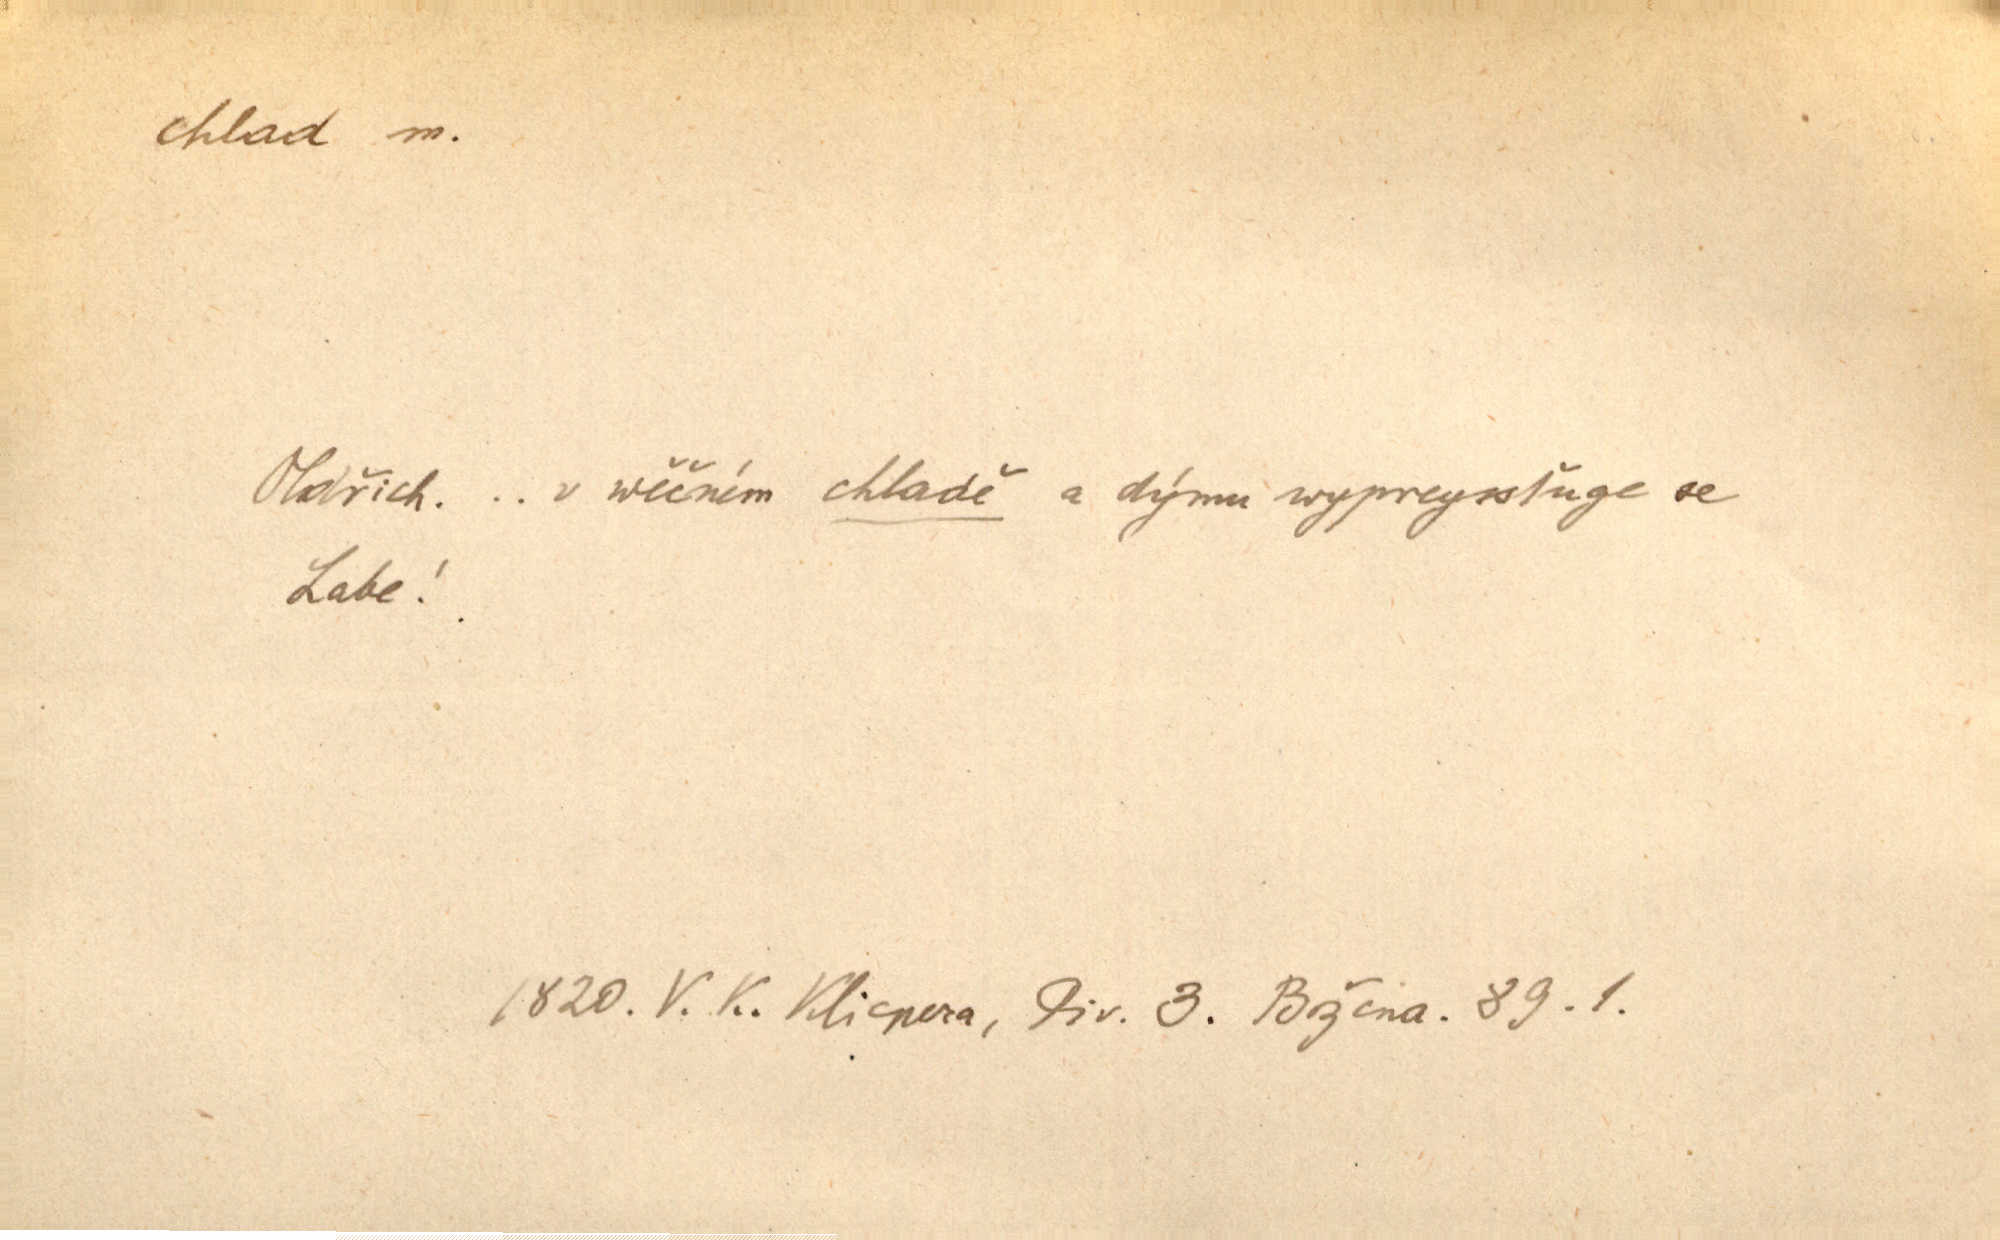 chlad m.
Oldřich. .. v wěčném chladě a dýmu wypreysstuge se
Labe!
1820. V. K. Klicpera, Div. 3. Božena. 89. 1.